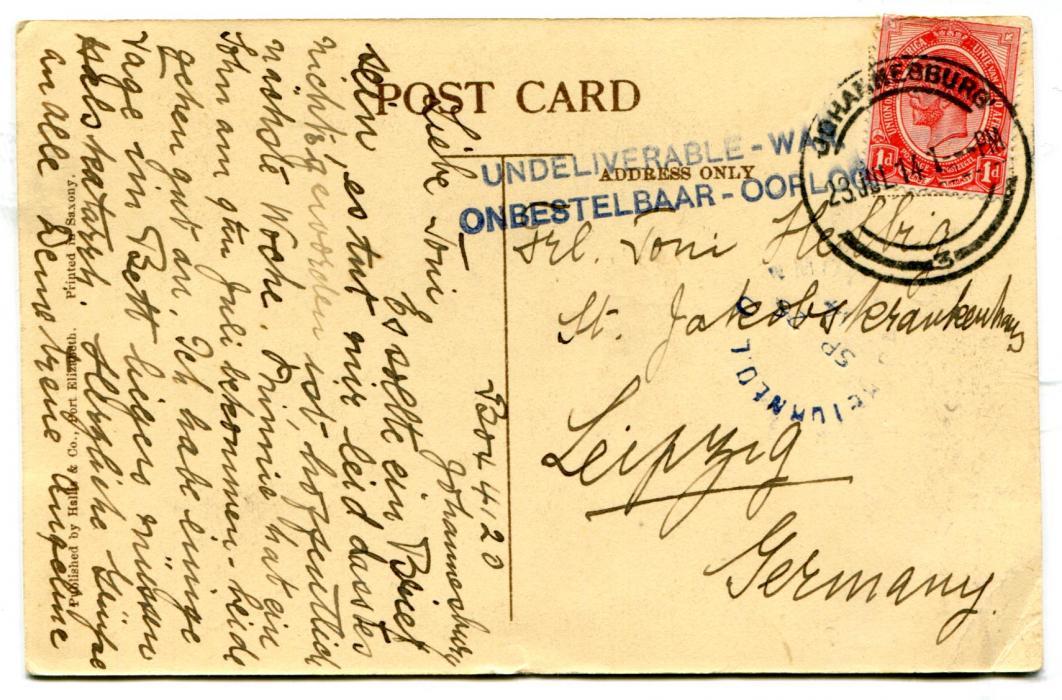 POST CARD
ADDRESS ONLY
UNDELIVERABLE - WAR
ONBESTELBAAR - OORLOG
JOHANNESBURG
23 JUL 14
3
UNION OF SOUTH AFRICA
UNIE VAN ZUID AFRIKA
1d 1d
RETURNED
Frl. Toni Helbig
St. Jakobskrankenhaus
Leipzig
Germany.
Box 4120
Johannesburg
Liebe Toni!
Es sollte ein Brief
sein, es tut mir leid dass es
nichts geworden ist, hoffentlich
nächste Woche. Minnie hat ein
Sohn am 9ten Juli bekommen - beide
gehen gut an. Ich habe einige
Tage im Bett liegen müssen
Halskatarrh. Herzliche Grüsse
an alle Deine treue Angeline
Published by Hallis & Co., Port Elizabeth. Printed in Saxony.